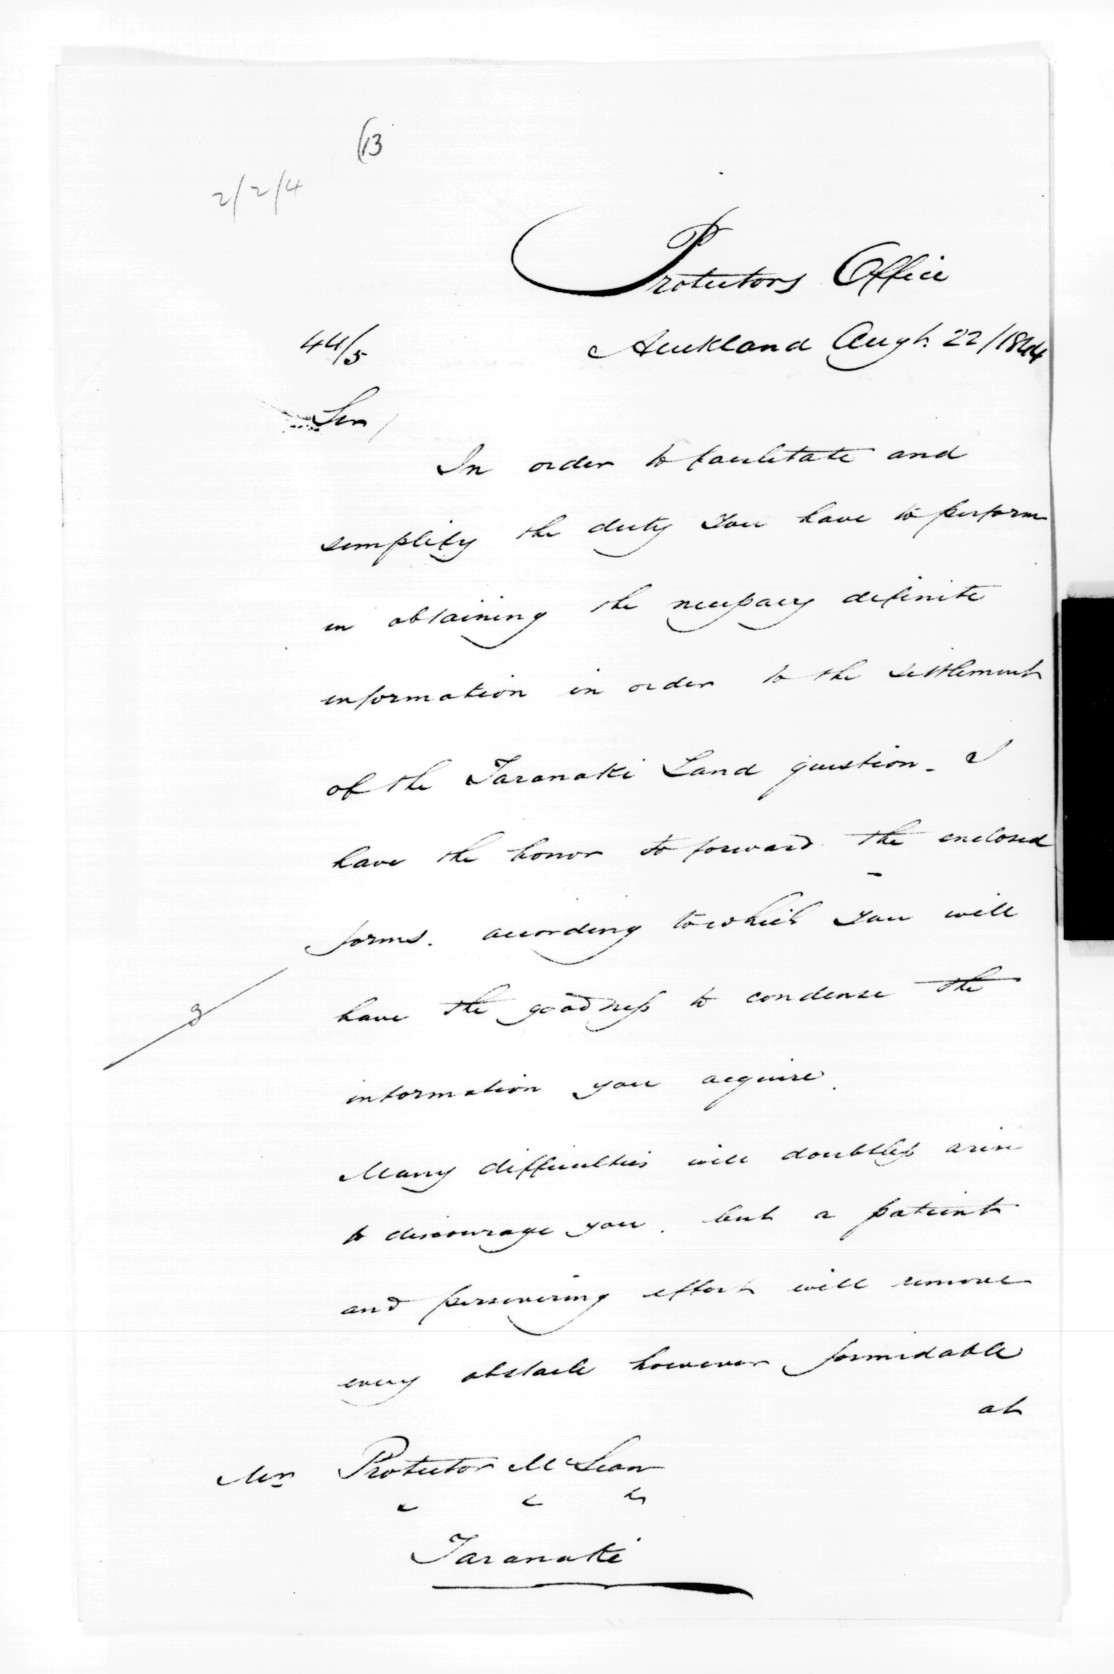 (13
2/2/4
Protectors Office
44/5
Auckland Augt. 22/1844
Sir/
In order to facilitate and
simplify the duty you have to perform
in obtaining the necessary definite
information in order to the settlement
of the Taranaki Land question - I
have the honor to forward the enclosed
forms. according to which you will
have the goodness to condense the
information you acquire.
Many difficulties will doubtless arise
to discourage you. but a patient
and persevering effort will remove
every obstacle however formidable
at
Mr Protector McLean
&c &c &c
Taranaki